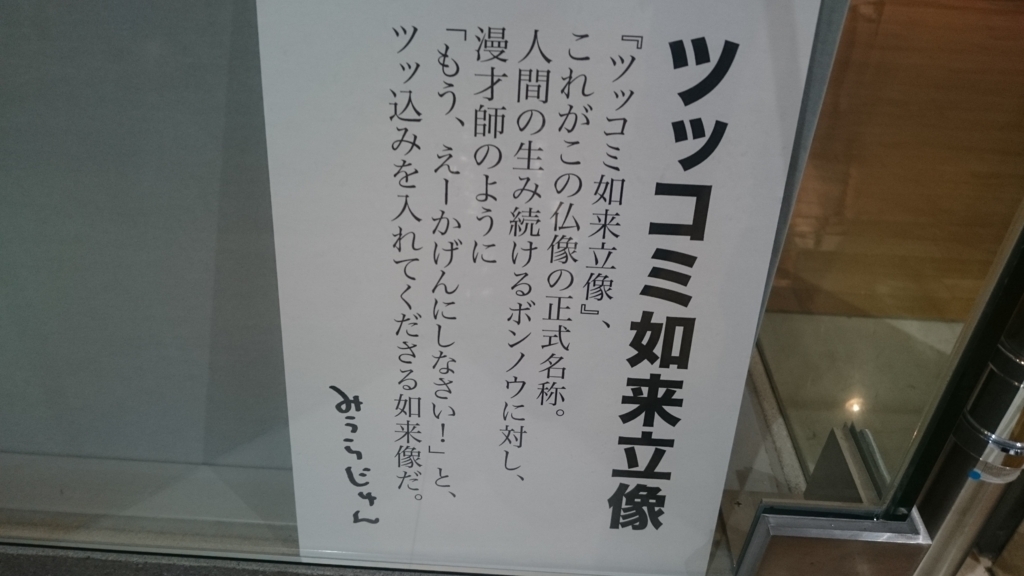 ツッコミ如来立像
『ツッコミ如来立像』、
これがこの仏像の正式名称。
人間の生み続けるボンノウに対し、
漫才師のように
「もう、えーかげんにしなさい！」と、
ツッ込みを入れてくださる如来像だ。
みうらじゅん